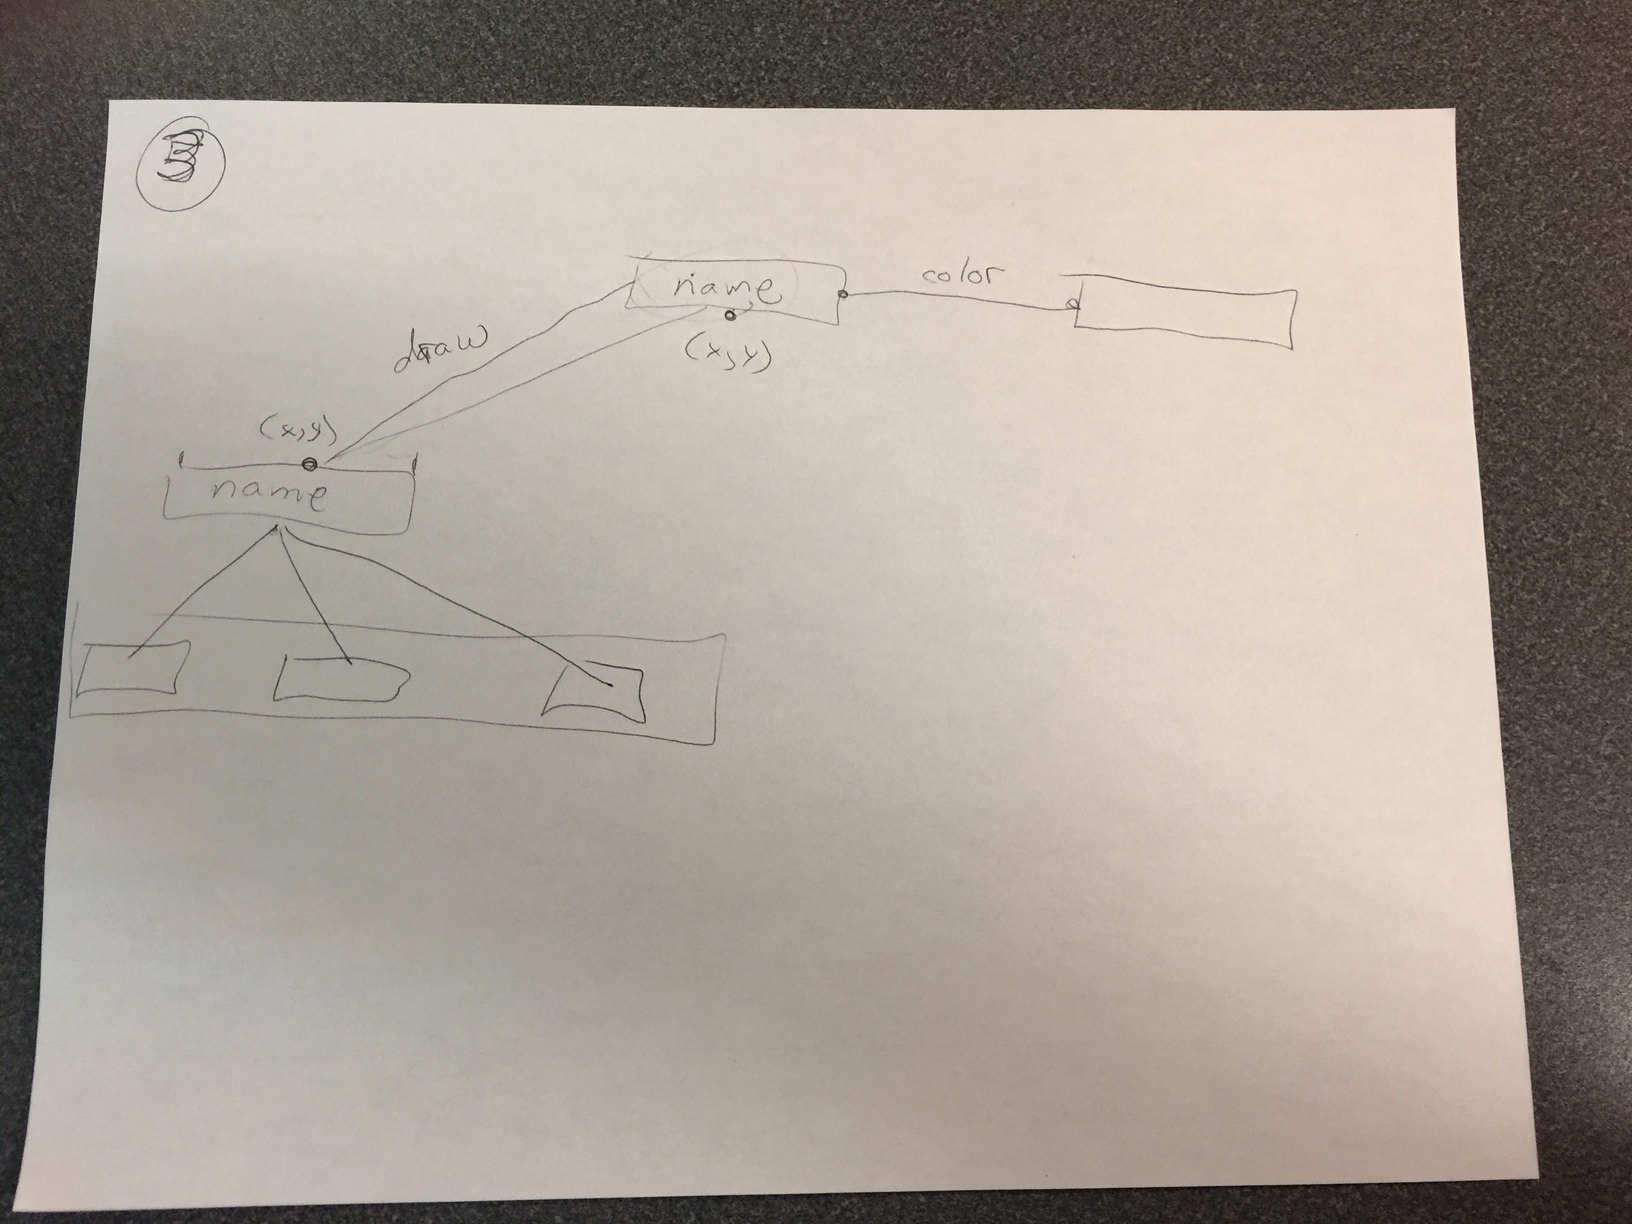 3
name
color
draw
(x,y)
(x,y)
name